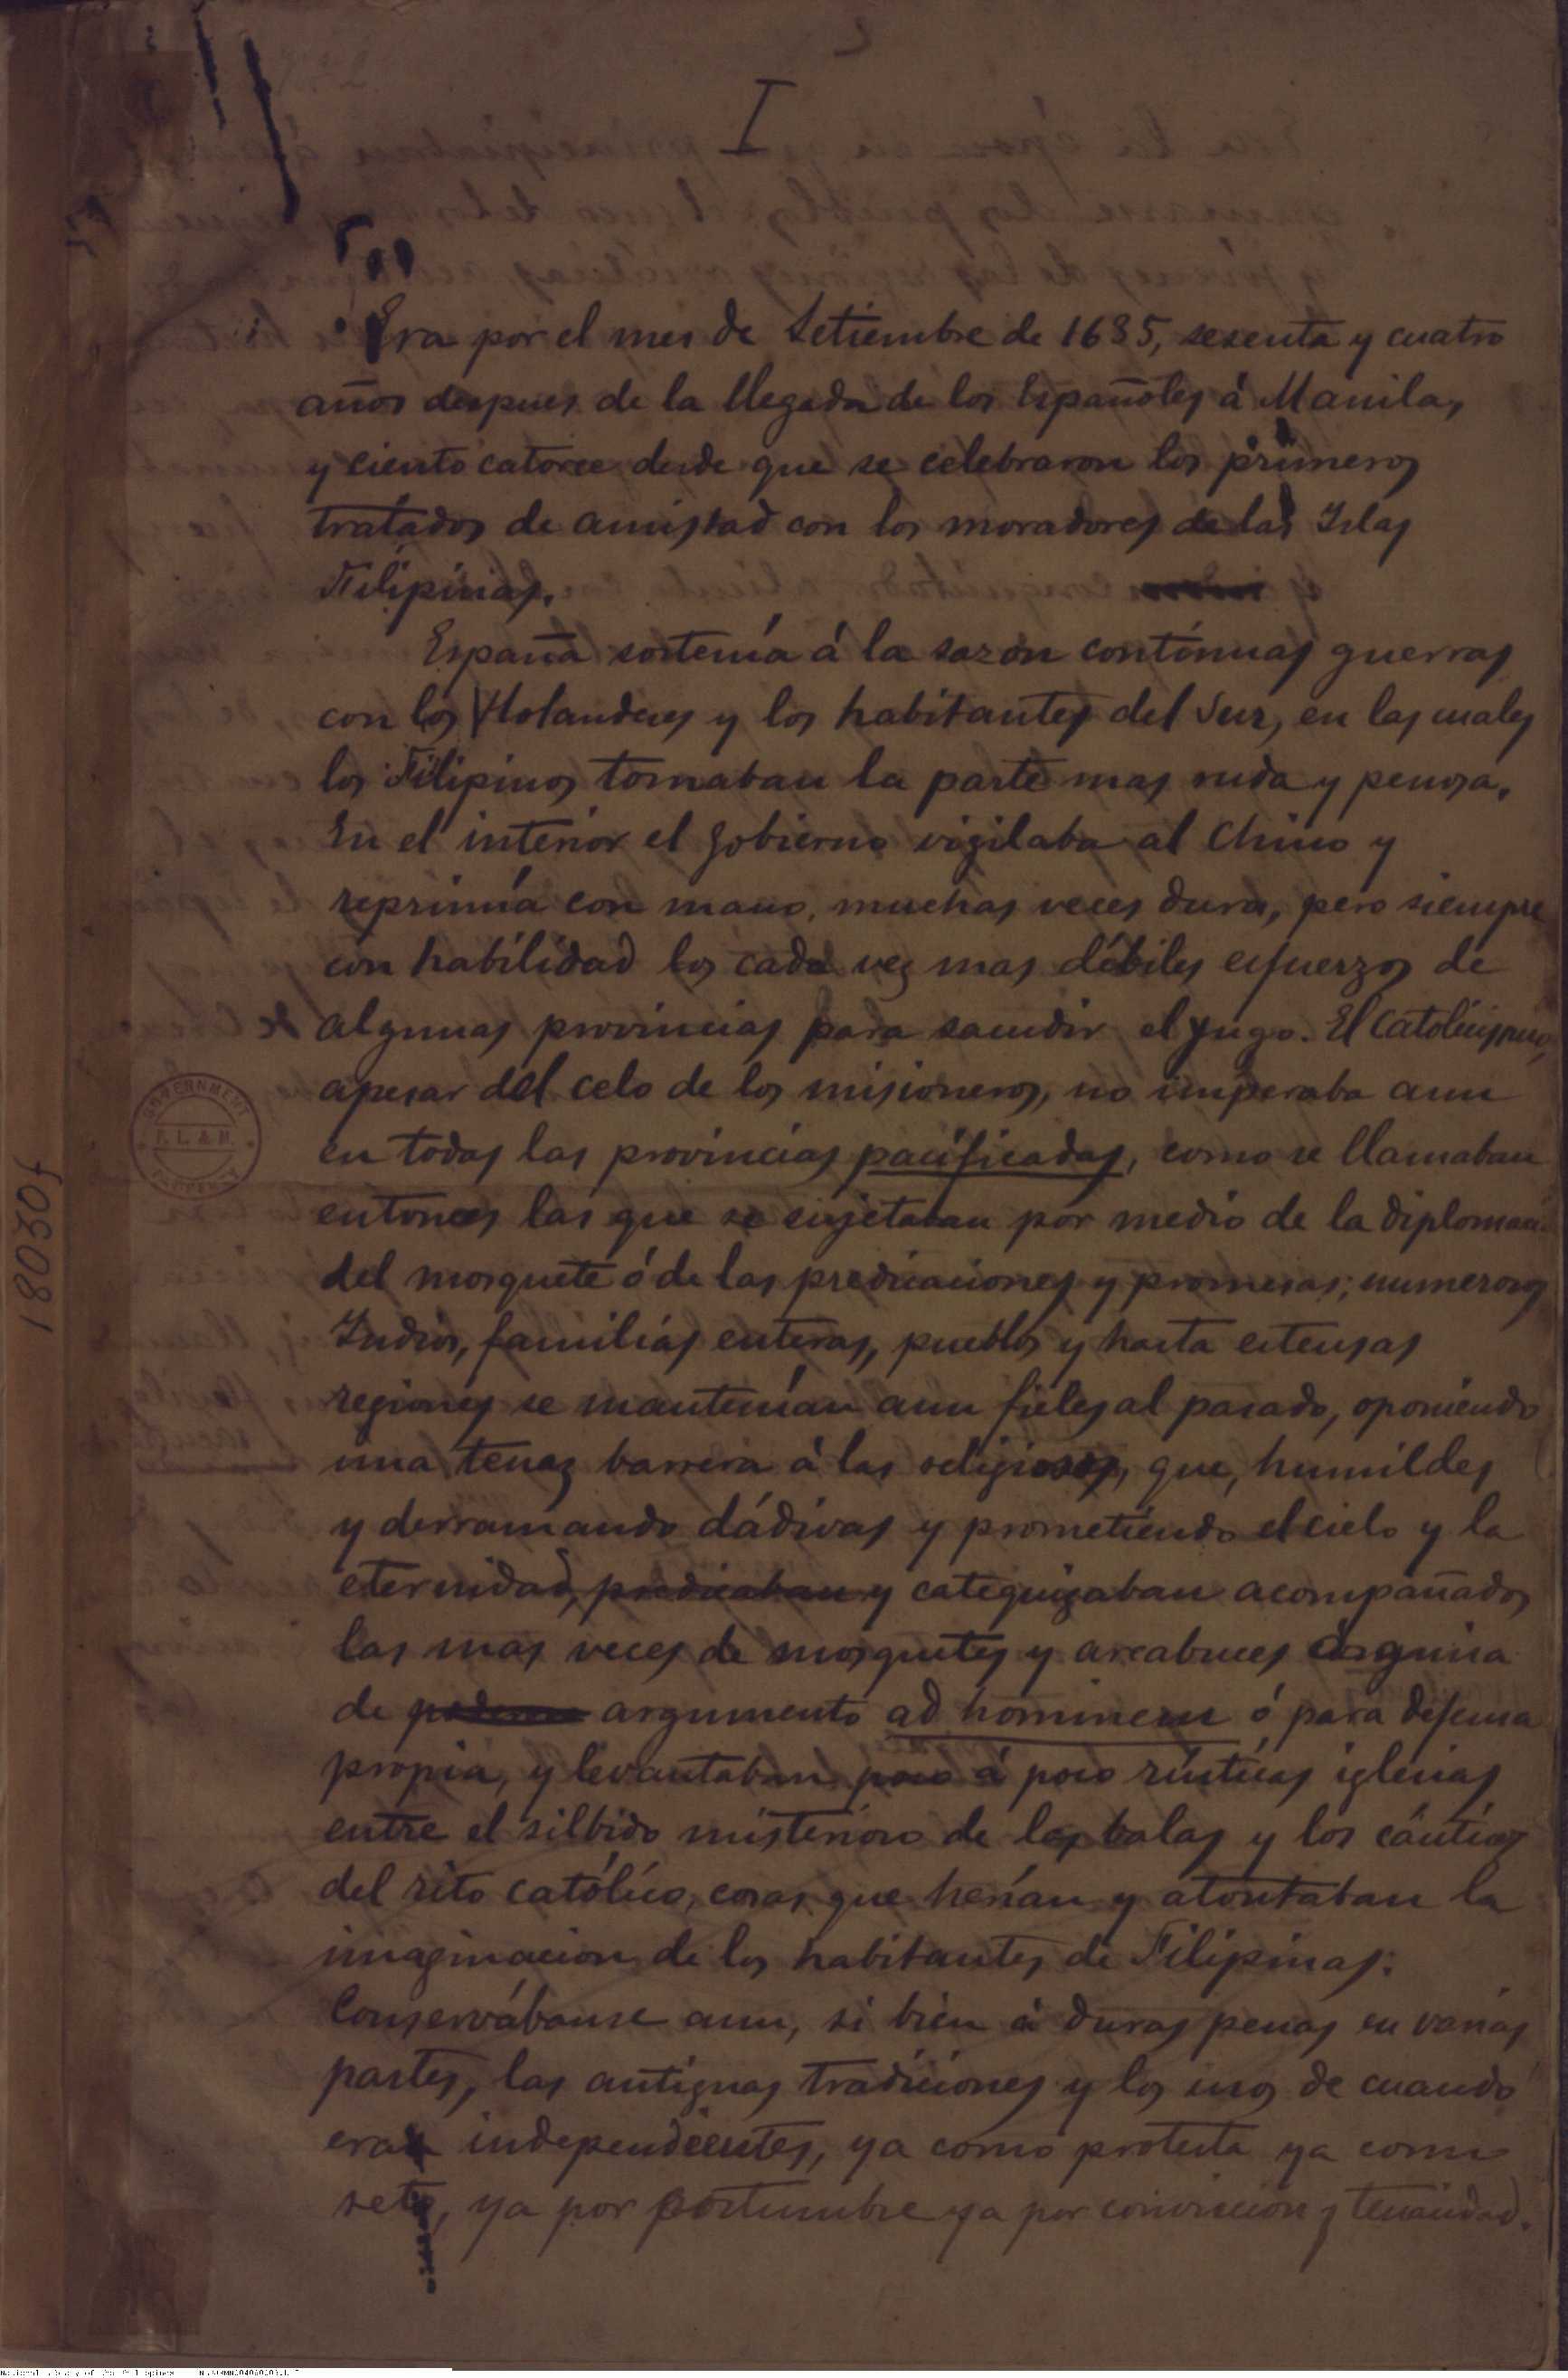 I
Era por el mes de Setiembre de 1685, sesenta y cuatro
años despues de la llegada de los Españoles á Manila,
y ciento catorce desde que se celebraron los primeros
tratados de amistad con los moradores de las Islas
Filipinas.
España sostenía á la sazon contónuas guerras
con los Holandeses y los habitantes del Sur, en las cuales
los Filipinos tomaban la parte mas ruda y penosa.
En el interior el gobierno vigilaba al Chino y
reprimía con mano, muchas veces dura, pero siempre
con habilidad los cada vez mas débiles esfuerzos de
algunas provincias para sacudir el yugo. El Catolicismo,
apesar del celo de los misioneros, no imperaba aun
en todas las provincias pacificadas, como se llamaban
entonces las que se sujetaban por medio de la diplomacia
del mosquete ó de las predicaciones y promesas; numerosos
Indios, familias enteras, pueblos y hasta estensas
regiones se mantenían aun fieles al pasado, oponiendo
una tenaz barrera á los religiosos, que, humildes
y derramando dádivas y prometiendo el cielo y la
eternidad, predicaban y catequizaban acompañados
las mas veces de mosquetes y arcabuces á guisa
de argumento ad hominem ó para defensa
propia, y levantaban poco á poco rústicas iglesias
entre el silbido misterioso de las balas y los cánticos
del rito católico, cosas que herían y atontaban la
imaginacion de los habitantes de Filipinas.
Conservábanse aun, si bien á duras penas en varias
partes, las antiguas tradiciones y los usos de cuando
eran independientes, ya como protesta ya como
reto, ya por costumbre ya por conviccion y tenacidad.
18030f
GOVERNMENT
P. L. & M.
PROPERTY
National Library of the Philippines